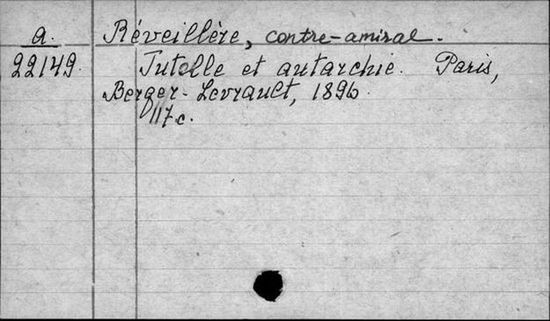 a. Réveillère, contre-amiral.
22149. Tutelle et autarchie. Paris,
Berger-Levrault, 1896.
117 c.